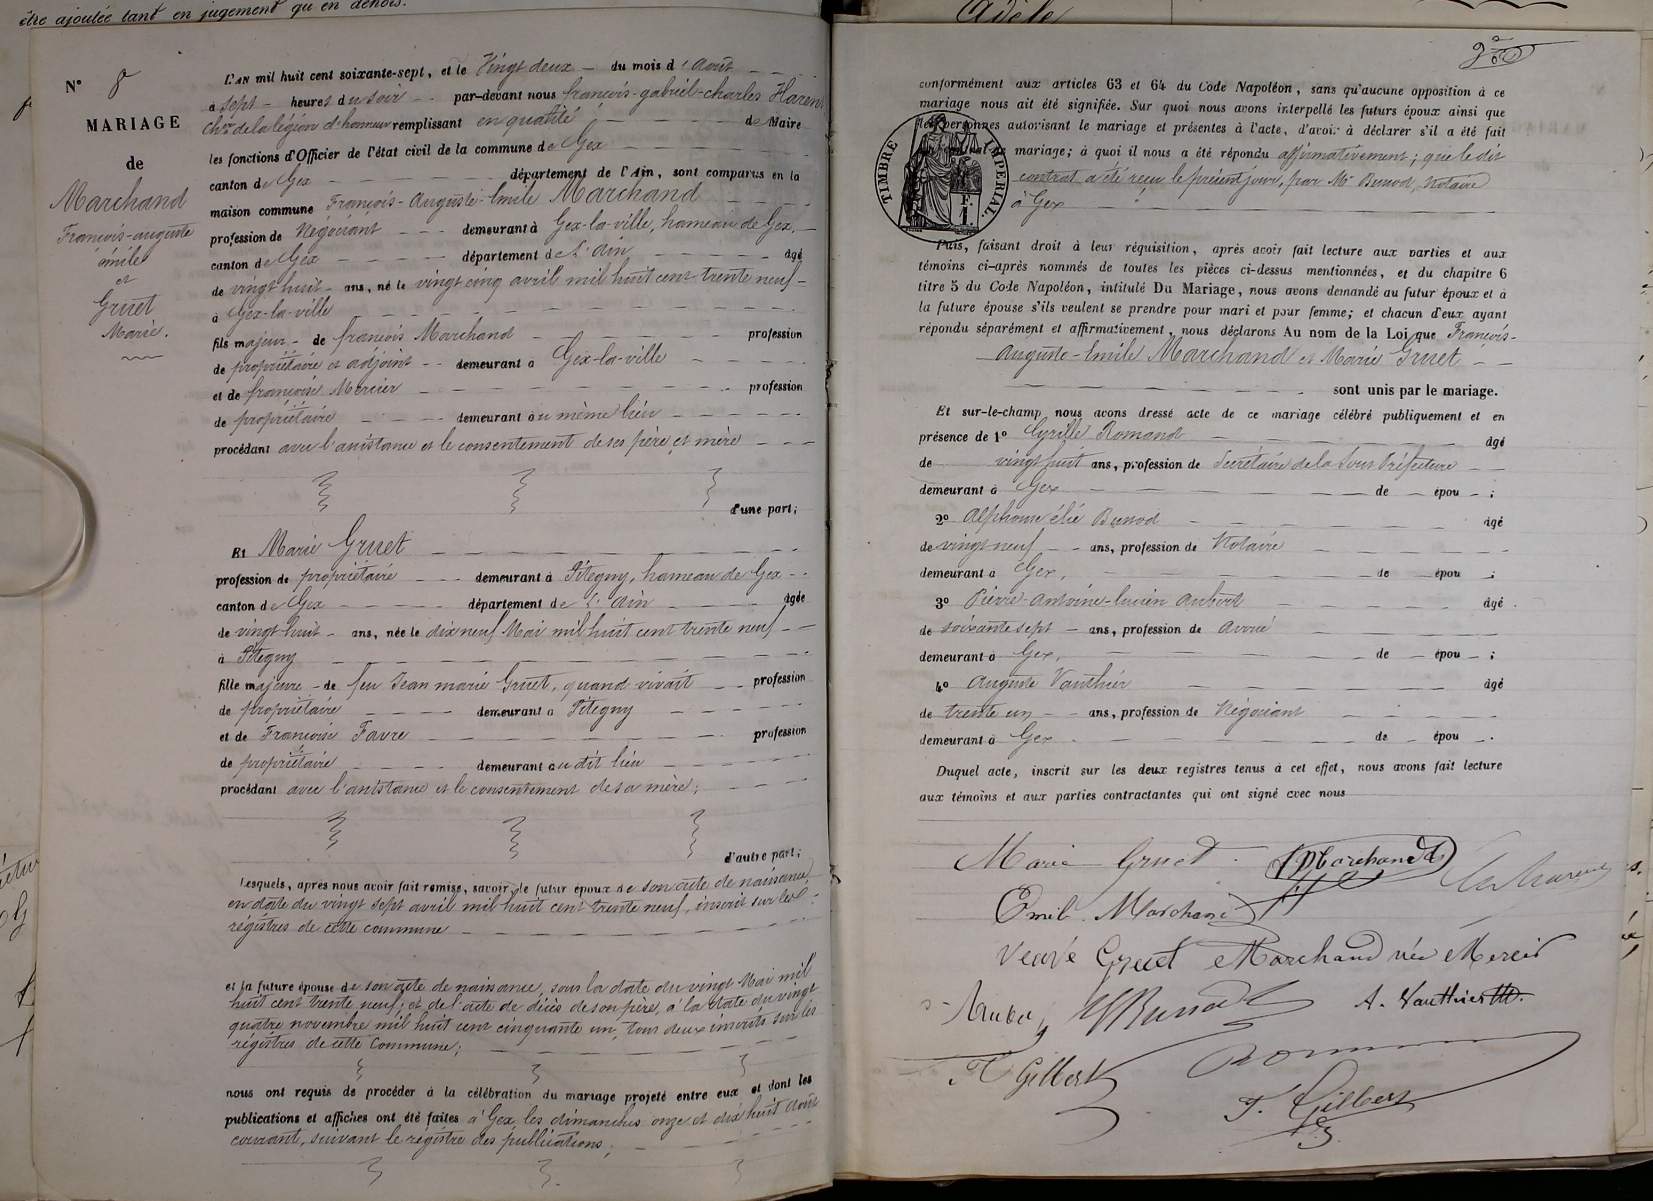 être ajoutée tant en jugement qu'en dehors.
N° 8
MARIAGE
de
Marchand
François-auguste
émile
et
Gruet
Marie.
L'AN mil huit cent soixante-sept, et le Vingt deux du mois d'Août
à sept heures du soir par-devant nous françois-gabriel-charles Harent
Chr de la légion d'honneur remplissant en qualité de Maire
les fonctions d'Officier de l'état civil de la commune de Gex
canton de Gex département de l'Ain, sont comparus en la
maison commune François-Auguste-Emile Marchand
profession de Négociant demeurant à Gex-la-ville, hameau de Gex,
canton de Gex département de l'Ain âgé
de vingt huit ans, né le vingt cinq avril mil huit cent trente neuf
à Gex-la-ville
fils majeur de françois Marchand profession
de propriétaire et adjoint demeurant à Gex-la-ville
et de françoise Mercier profession
de propriétaire demeurant au même lieu
procédant avec l'assistance et le consentement de ses père et mère
d'une part;
Et Marie Gruet
profession de propriétaire demeurant à Pitegny, hameau de Gex
canton de Gex département de l'Ain âgée
de vingt huit ans, née le dix neuf Mai mil huit cent trente neuf
à Pitegny
fille majeure de feu Jean marie Gruet, quand vivait profession
de propriétaire demeurant à Pitegny
et de Françoise Favre profession
de propriétaire demeurant au dit lieu
procédant avec l'assistance et le consentement de sa mère;
d'autre part;
Lesquels, après nous avoir fait remise, savoir, le futur époux de son acte de naissance,
en date du vingt sept avril mil huit cent trente neuf, inscrit sur les
régistres de cette commune
et la future épouse de son acte de naissance, sous la date du vingt Mai mil
huit cent trente neuf; et de l'acte de décès de son père, à la date du vingt
quatre novembre mil huit cent cinquante un, tous deux inscrits sur les
régistres de cette Commune;
nous ont requis de procéder à la célébration du mariage projeté entre eux et dont les
publications et affiches ont été faites à Gex les dimanches onze et dix huit août
courant, suivant le régistre des publications;
Adèle
conformément aux articles 63 et 64 du Code Napoléon, sans qu'aucune opposition à ce
mariage nous ait été signifiée. Sur quoi nous avons interpellé les futurs époux ainsi que
les personnes autorisant le mariage et présentes à l'acte, d'avoir à déclarer s'il a été fait
mariage; à quoi il nous a été répondu affirmativement; que le dit
contrat a été reçu le présent jour, par Me Bunod, Notaire
à Gex
TIMBRE IMPERIAL.
F.
1
Puis, faisant droit à leur réquisition, après avoir fait lecture aux parties et aux
témoins ci-après nommés de toutes les pièces ci-dessus mentionnées, et du chapitre 6
titre 5 du Code Napoléon, intitulé Du Mariage, nous avons demandé au futur époux et à
la future épouse s'ils veulent se prendre pour mari et pour femme; et chacun d'eux ayant
répondu séparément et affirmativement, nous déclarons Au nom de la Loi, que François-
auguste-Emile Marchand et Marie Gruet
sont unis par le mariage.
Et sur-le-champ nous avons dressé acte de ce mariage célébré publiquement et en
présence de 1° Cyrille Romand âgé
de vingt huit ans, profession de Secrétaire de la Sous Préfecture
demeurant à Gex de épou ;
2° Alphonse élie Bunod âgé
de vingt neuf ans, profession de Notaire
demeurant à Gex, de épou ;
3° Pierre-antoine-lucien Aubert âgé
de soixante sept ans, profession de avoué
demeurant à Gex, de épou ;
4° Auguste Vauthier âgé
de trente un ans, profession de Négociant
demeurant à Gex de épou .
Duquel acte, inscrit sur les deux registres tenus à cet effet, nous avons fait lecture
aux témoins et aux parties contractantes qui ont signé avec nous
Marie Gruet. Marchand Harent
Emile Marchand
Veuve Gruet Marchand née Mercier
Bunod A. Vauthier
Gilbert Romand
F. Gilbert